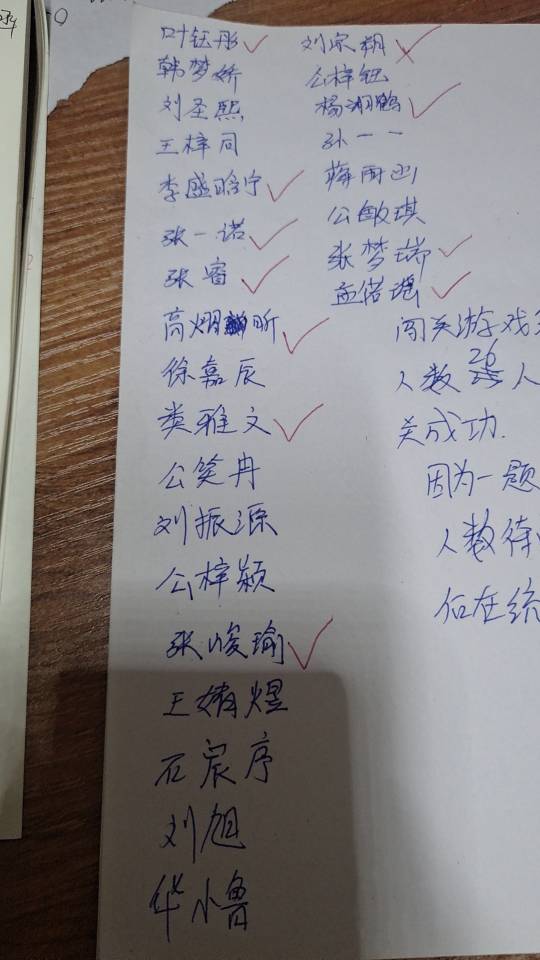 叶钰彤
韩梦娇
刘圣熙
王梓同
李盛晗宁
张一诺
张睿
高熠昕
徐嘉辰
类雅文
公笑冉
刘振源
公梓颖
张峻瑜
王婧煜
石宸序
刘旭
华小鲁
刘宸翔
公梓钰
杨淑鹤
孙一一
公敏琪
张梦瑞
孟偌瑶
闯关游戏
人数 26 人
关成功.
因为一题
人数待
们在统